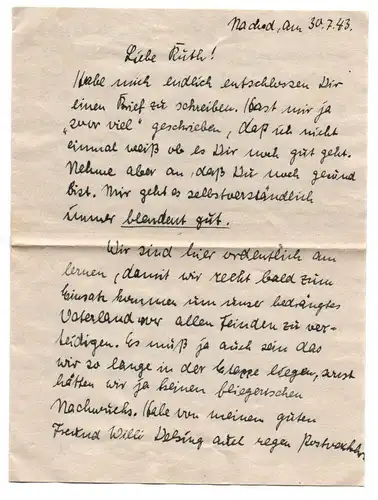 Nachod, am 30.7.43.
Liebe Ruth!
Habe mich endlich entschlossen Dir
einen Brief zu schreiben. Hast mir ja
„soor viel" geschrieben, daß ich nicht
einmal weiß ob es Dir noch gut geht.
Nehme aber an, daß Du noch gesund
bist. Mir geht es selbstverständlich
immer blendent gut.
Wir sind hier ordentlich am
lernen, damit wir recht bald zum
Einsatz kommen um unser bedrängtes
Vaterland vor allen Feinden zu ver-
teidigen. Es muß ja auch sein das
wir so lange in der Etappe liegen, sonst
hätten wir ja keinen fliegerischen
Nachwuchs. Habe von meinem guten
Freund Willi auch regen Postverkehr